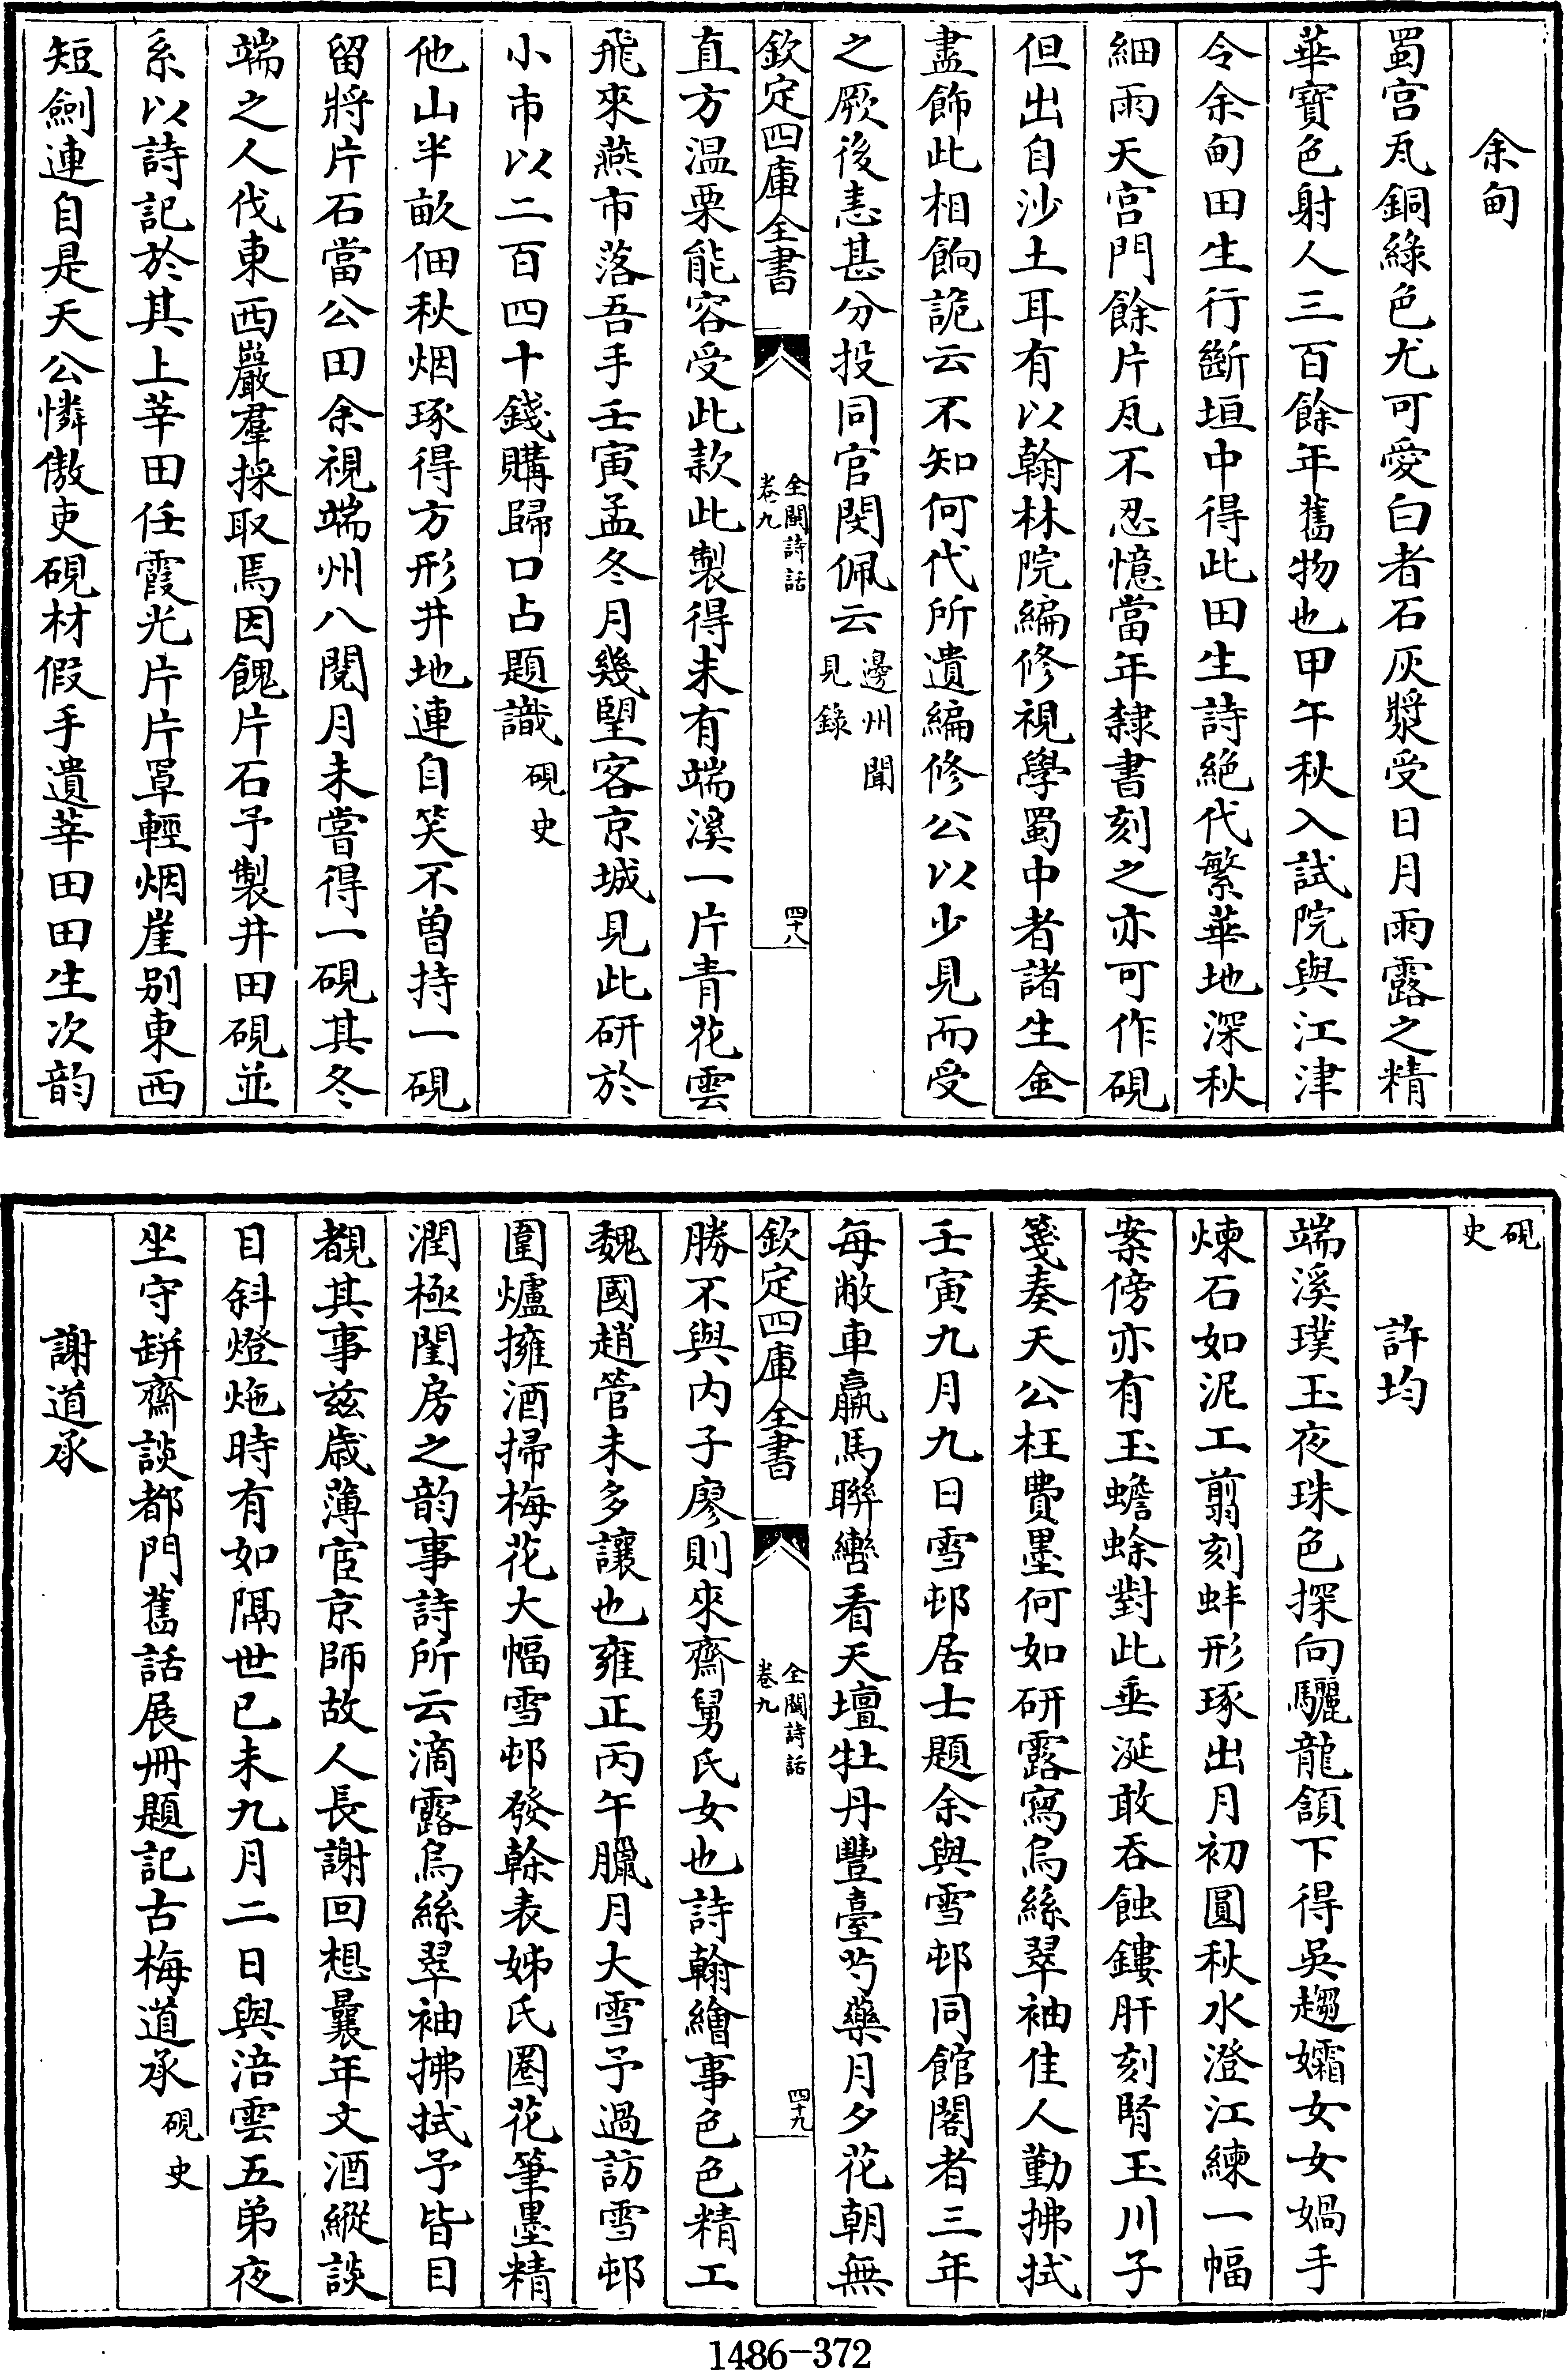 余甸
蜀宫瓦銅綠色尤可愛白者石灰漿受日月雨露之精
華寳色射人三百餘年舊物也甲午秋入試院與江津
令余甸田生行斷垣中得此田生詩絶代繁華地深秋
細雨天宫門餘片瓦不忍憶當年隸書刻之亦可作硯
但出自沙土耳有以翰林院編修視學蜀中者諸生金
盡飾此相餉詭云不知何代所遺編修公以少見而受
之厥後恚甚分投同官閔佩云邊州聞
見錄
欽定四庫全書
全閩詩話
卷九
四十八
直方温栗能容受此款此製得未有端溪一片青花雲
飛來燕市落吾手壬寅孟冬月幾朢客京城見此研於
小市以二百四十錢購歸口占題識硯史
他山半畝佃秋烟琢得方形井地連自笑不曽持一硯
留將片石當公田余視端州八閲月未嘗得一硯其冬
端之人伐東西巖羣採取焉因餽片石予製井田硯並
系以詩記於其上莘田任霞光片片罩輕烟崖别東西
短劍連自是天公憐傲吏硯材假手遺莘田田生次韵
硯
史
許均
端溪璞玉夜珠色探向驪龍頷下得吳趨孀女女媧手
煉石如泥工翦刻蚌形琢出月初圓秋水澄江練一幅
案傍亦有玉蟾蜍對此垂涎敢吞蝕鏤肝刻腎玉川子
箋奏天公枉費墨何如研露寫烏絲翠袖佳人勤拂拭
壬寅九月九日雪邨居士題余與雪邨同館閣者三年
每敝車羸馬聯轡看天壇牡丹豐臺芍藥月夕花朝無
欽定四庫全書
全閩詩話
卷九
四十九
勝不與内子廖則來齋舅氏女也詩翰繪事色色精工
魏國趙管未多讓也雍正丙午臘月大雪予過訪雪邨
圍爐擁酒掃梅花大幅雪邨發榦表姊氏圈花筆墨精
潤極閨房之韵事詩所云滴露烏絲翠袖拂拭予皆目
覩其事兹歳薄宦京師故人長謝回想曩年文酒縱談
日斜燈炧時有如隔世已未九月二日與涪雲五弟夜
坐守缾齋談都門舊話展冊題記古梅道承硯史
謝道承
1486-372